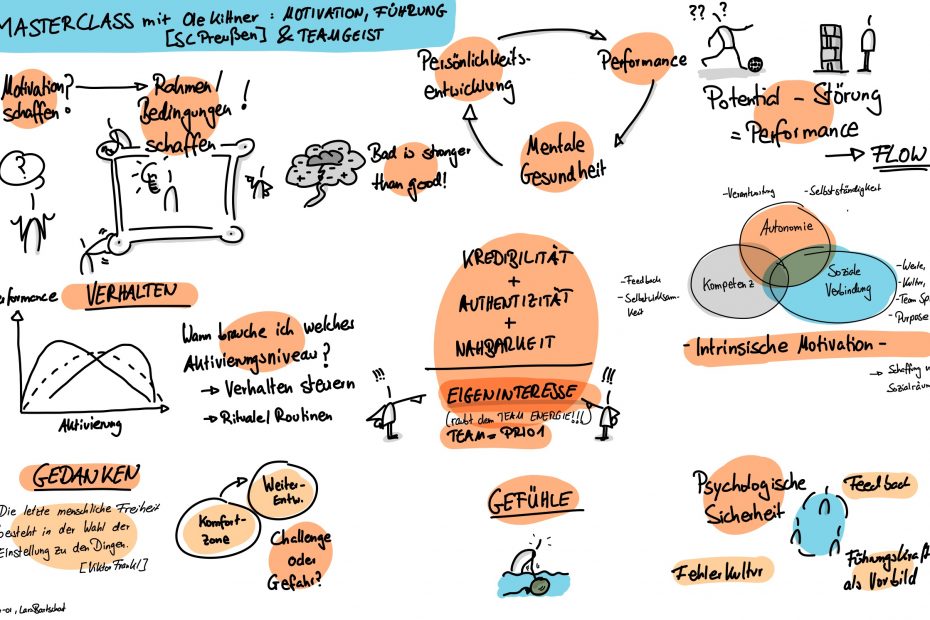 MASTERCLASS mit Ole Kittner : MOTIVATION, FÜHRUNG
[SC Preußen] & TEAMGEIST
Motivation?
schaffen!
Rahmen/
Bedingungen!
schaffen
?
Bad is stronger
than good!
Persönlichkeits-
entwicklung
Performance
Mentale
Gesundheit
?? ?
Potential – Störung
= Performance
→ FLOW
- Verantwortung
- Selbstständigkeit
Autonomie
Kompetenz
Soziale
Verbindung
- Feedback
- Selbstwirksam-
keit
- Werte,
- Kultur,
- Team Sp
- Purpose
- Intrinsische Motivation -
→ Schaffung v
Sozialräum
erformance
VERHALTEN
Aktivierung
Wann brauche ich welches
Aktivierungsniveau?
→ Verhalten steuern
→ Rituale/Routinen
KREDIBILITÄT
+
AUTHENTIZITÄT
+
NAHBARKEIT
!!!
!!!
EIGENINTERESSE
(raubt dem TEAM ENERGIE!!!)
TEAM = PRIO1
GEDANKEN
Die letzte menschliche Freiheit
besteht in der Wahl der
Einstellung zu den Dingen.
[Viktor Frankl]
Komfort-
zone
Weiter-
Entw.
Challenge
oder
Gefahr?
GEFÜHLE
Psychologische
Sicherheit
Feedback
Fehlerkultur
Führungskraft
als Vorbild
-01, Lars Bartschat